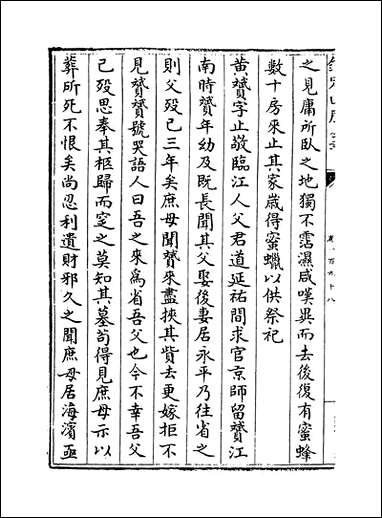 欽定四庫全書
卷一百九十八
之見庸所臥之地獨不霑濕咸嘆異而去後復有蜜蜂
數十房來止其家歲得蜜蠟以供祭祀
黄贇字止敬臨江人父君道延祐間求官京師留贇江
南時贇年幼及既長聞其父娶後妻居永平乃往省之
則父殁已三年矣庶母聞贇來盡挾其貲去更嫁拒不
見贇贇號哭語人曰吾之來爲省吾父也今不幸吾父
已殁思奉其柩歸而窆之莫知其墓苟得見庶母示以
葬所死不恨矣尚忍利遺財邪久之聞庶母居海濱亟